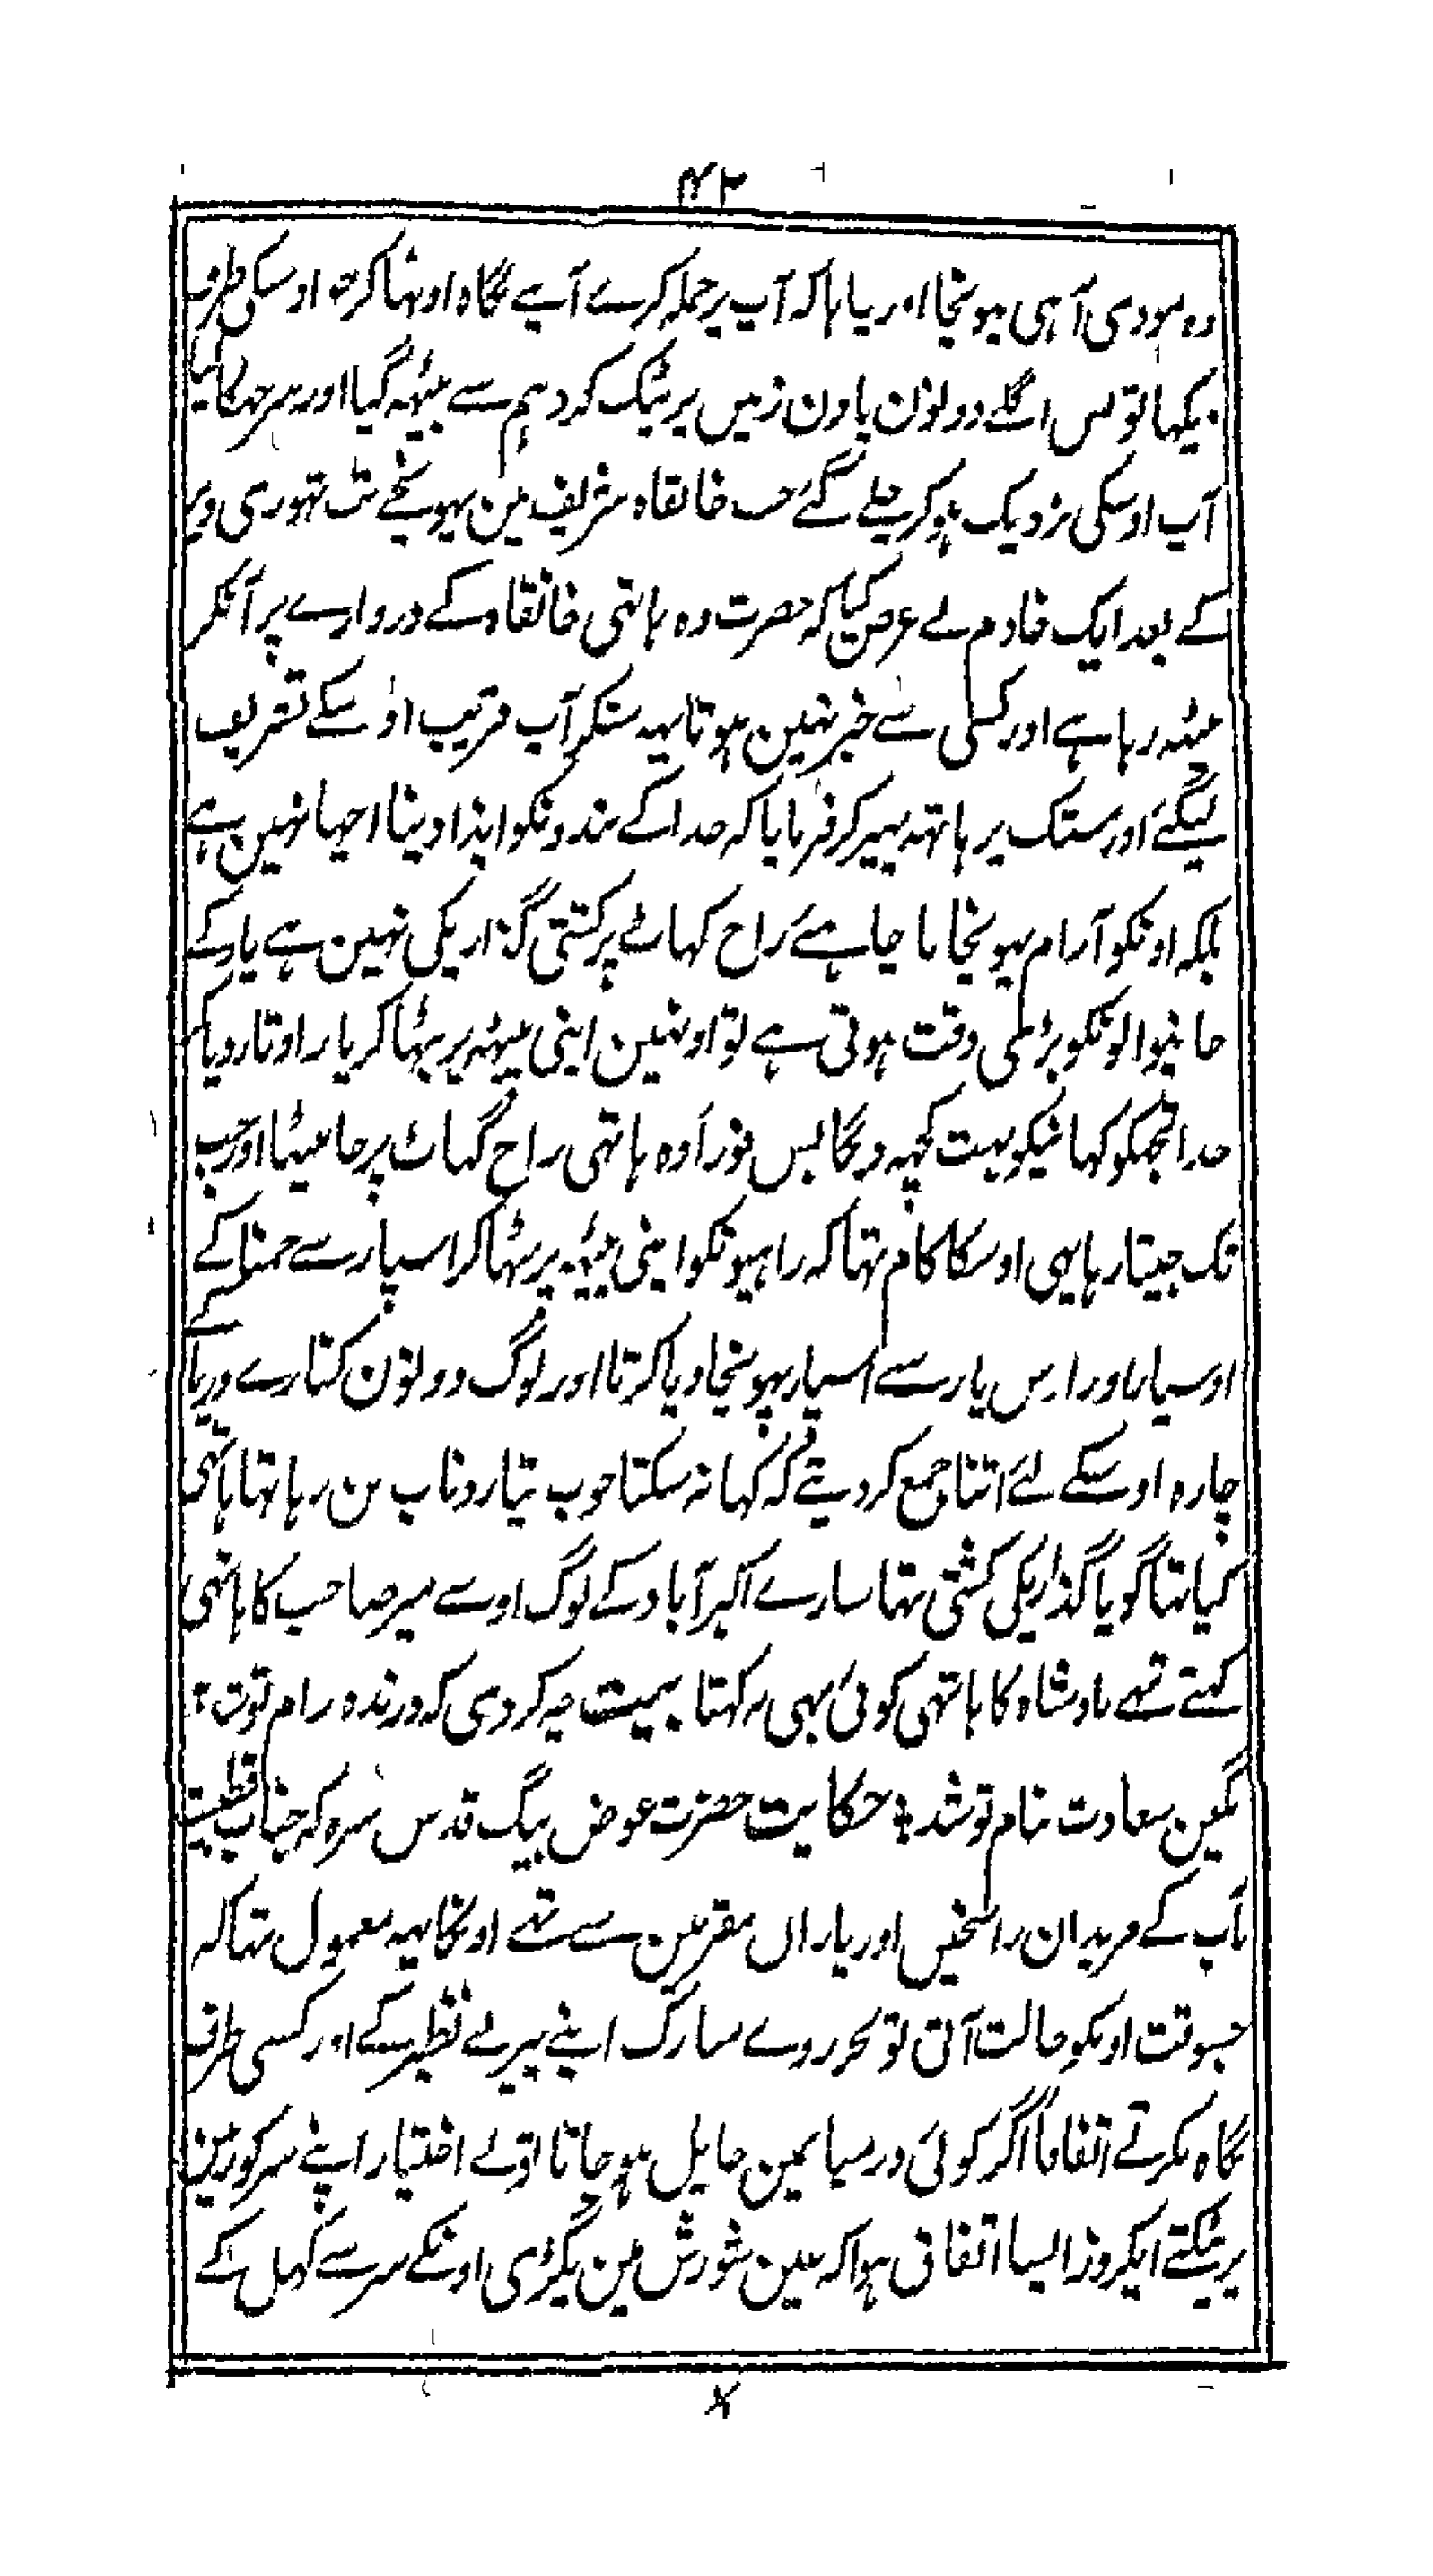 ۴۲
وہ موذی آہی پہونچا اور چاہا کہ آپ پر حملہ کرے آپنے نگاہ اوٹھا کر جو اوسکی طرف
دیکہا تو بس اگلے دونون پاون زمیں پر ٹیک کر دہم سے بیٹہہ گیا اور سر جہکا لیا
آپ اوسکی نزدیک ہو کر چلے گئے جب خانقاہ شریف مین پہونچے تب تہوری دیر
کے بعد ایک خادم نے عرض کیا کہ حضرت وہ ہاتہی خانقاہ کے دروازے پر آنکر
بیٹہہ رہا ہے اور کسی سے خبر نہین ہوتا یہہ سنکر آپ قریب اوسکے تشریف
لیگئے اور مستک پر ہاتہہ پہیر کر فرمایا کہ خدا کے بندونکو ایذا دینا اچہا نہین ہے
بلکہ اونکو آرام پہونچانا چاہئے راج گہاٹ پر کشتی گزاریکی نہین ہے پار کے
جانیوالونکو بڑی دقت ہوتی ہے تو اونہین اپنی پیٹہہ پر بٹہا کر پار اوتار دیا کر
خدا تجہکو کہانیکو بہت کچہہ دیگا بس فوراً وہ ہاتہی راج گہاٹ پر جا بیٹہا اور جب
تک جیتا رہا یہی اوسکا کام تہا کہ راہیونکو اپنی پیٹہہ پر بٹہا کر اسپار سے جمنا کے
اوسپار اور اوس پار سے اسپار پہونچا دیا کرتا اور لوگ دونون کنارے دریا کے
چارہ اوسکے لئے اتنا جمع کر دیتے کہ کہا نہ سکتا خوب تیار و ناب بن رہا تہا ہاتہی
کیا تہا گویا گذاریکی کشتی تہا سارے اکبرآباد کے لوگ اوسے میر صاحب کا ہاتہی
کہتے تہے بادشاہ کا ہاتہی کوئی بہی نہ کہتا بیت چہ کردی کہ درندہ رام تو شد ؛
نگین سعادت بنام تو شد ؛ حکایت حضرت عوض بیگ قدس سرہ کہ جناب قطبیت
مآب کے مریدان راسخیں اور یاراں مقربین سے تہے اونکا یہہ معمول تہا کہ
جسوقت اونکو حالت آتی تو بجز روے مبارک اپنے پیر بے نظیر کے اور کسی طرف
نگاہ نکرتے اتفاقاً اگر کوئی درمیا نمین حایل ہو جاتا تو بے اختیار اپنے سر کو زمین
پر پٹکتے ایکروز ایسا اتفاق ہوا کہ عین شورش مین پگڑی اونکے سر سے کہل کے